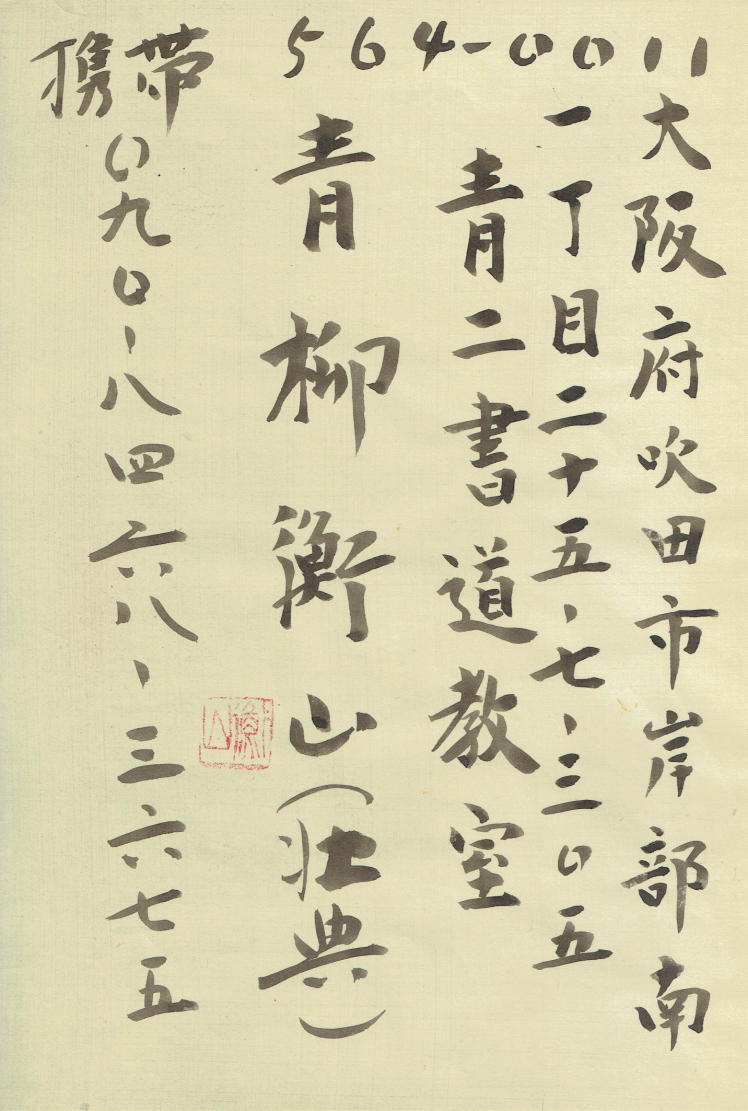 564-0011
大阪府吹田市岸部南
一丁目二十五、七、三〇五
青二書道教室
青柳衡山(壮典)
携帯〇九〇、八四六八、三六七五
衡山